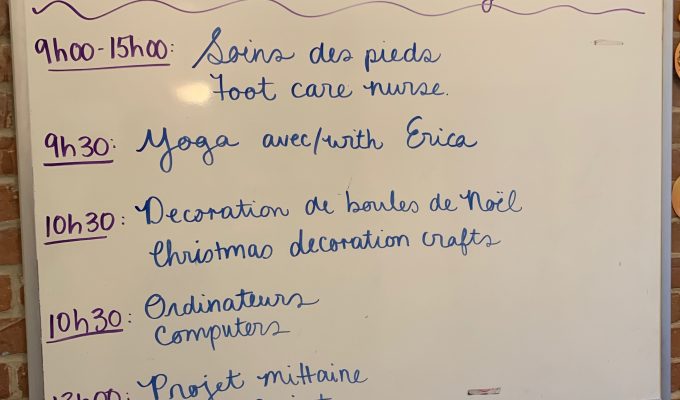 9h00-15h00: Soins des pieds
Foot care nurse.
9h30: Yoga avec/with Erica
10h30: Decoration de boules de Noël
Christmas decoration crafts
10h30: Ordinateurs
Computers
Projet mittaine